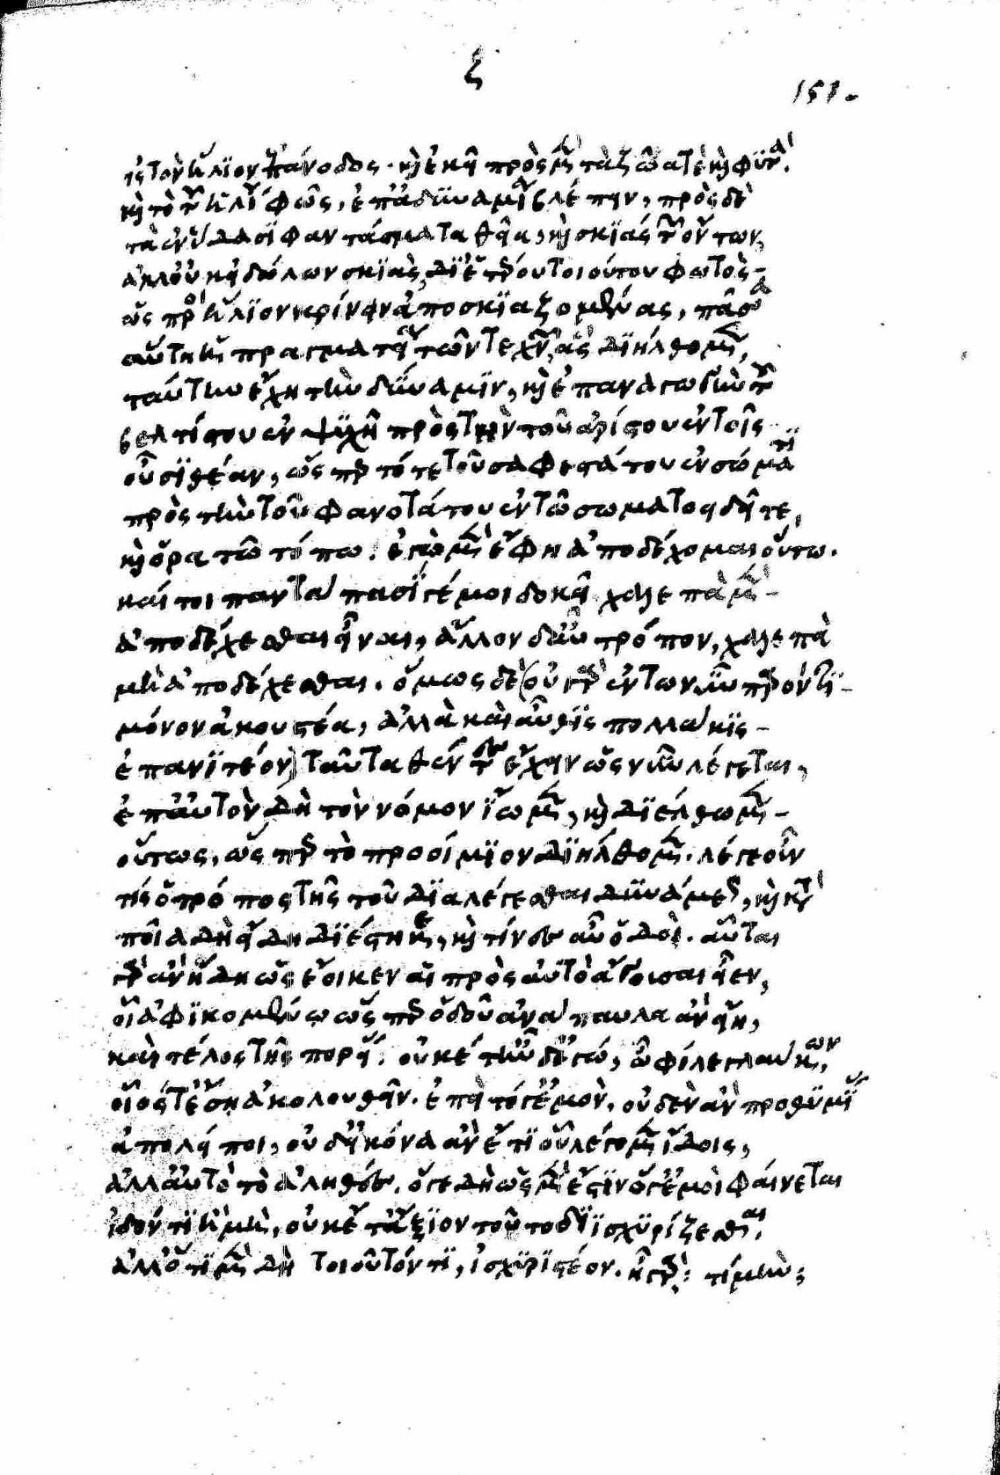 ξ
151.
εἰς τὸν ἥλιον ἐπάνοδος· καὶ ἐκεῖ πρὸς μὲν τὰ ζῶα τε καὶ φυτὰ
καὶ τὸ τοῦ ἡλίου φῶς, ἔτι ἀδυναμία βλέπειν, πρὸς δὲ
τὰ ἐν ὕδασι φαντάσματα θεῖα, καὶ σκιάς τῶν ὄντων,
ἀλλ' οὐκ εἰδώλων σκιὰς, δι' ἑτέρου τοιούτου φωτὸς
ὡς πρὸς ἥλιον κρίνειν ἀποσκιαζομένας, πᾶσα
αὕτη ἡ πραγματεία τῶν τεχνῶν, ἃς διήλθομεν,
ταύτην ἔχει τὴν δύναμιν, καὶ ἐπαναγωγὴν τοῦ
βελτίστου ἐν ψυχῆ πρὸς τὴν τοῦ ἀρίστου ἐν τοῖς
οὖσι θέαν, ὥσπερ τότε τοῦ σαφεστάτου ἐν σώματι
πρὸς τὴν τοῦ φανοτάτου ἐν τῶ σωματοειδεῖ τε,
καὶ ὁρατῶ τόπω. ἐγὼ μὲν ἔφη ἀποδέχομαι οὕτω.
καί τοι παντάπασί γέ μοι δοκεῖ χαλεπὰ μὲν
ἀποδέχεσθαι εἶναι, ἄλλον δ' αὖ τρόπον, χαλεπὰ
μὴ ἀποδέχεσθαι. ὅμως δὲ (οὐ γὰρ ἐν τῶ νῦν παρόντι
μόνον ἀκουστέα, ἀλλὰ καὶ αὖθις πολλάκις
ἐπανιτέον) ταῦτα θέντες ἔχειν ὡς νῦν λέγεται,
ἐπ' αὐτὸν δὴ τὸν νόμον ἴωμεν, καὶ διέλθωμεν
οὕτως, ὥσπερ τὸ προοίμιον διήλθομεν. λέγε οὖν
τίς ὁ τρόπος τῆς τοῦ διαλέγεσθαι δυνάμεως, καὶ κατὰ
ποῖα δὴ εἴδη διέστηκε, καὶ τίνες αὖ ὁδοί. αὗται
γὰρ ἂν ἤδη ὡς ἔοικεν αἱ πρὸς αὐτὸ ἄγουσαι εἶεν,
οἷ ἀφικομένω ὥσπερ ὁδοῦ ἀνάπαυλα ἂν εἴη,
καὶ τέλος τῆς πορείας. οὐκέτ' ἦν δ' ἐγώ, ὦ φίλε γλαύκων,
οἷός τ' ἔσῃ ἀκολουθεῖν. ἐπεὶ τό γ' ἐμὸν, οὐδὲν ἂν προθυμίας
ἀπολείποι, οὐδ' εἰκόνα ἂν ἔτι οὗ λέγομεν ἴδοις,
ἀλλ' αὐτὸ τὸ ἀληθές. ὅ γε δὴ ὡς μὲν ἔστιν ὅ γέ μοι φαίνεται
ἰδόντι ἢ μὴ, οὐκέτ' ἄξιον τοῦτο διϊσχυρίζεσθαι.
ἀλλ' ὅτι μὲν δὴ τοιοῦτόν τι, ἰσχυριστέον. ἦ γάρ; τί μήν;